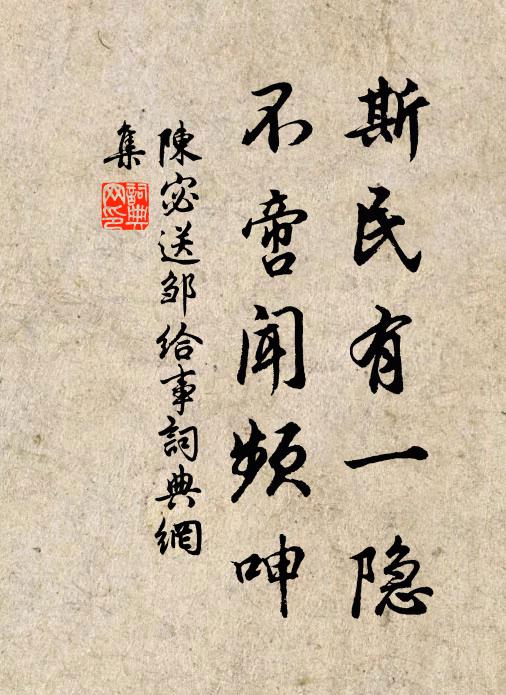 斯民有一隐
不啻闻频呻
陳宓送邹给事詞典網
集
詞典
网印